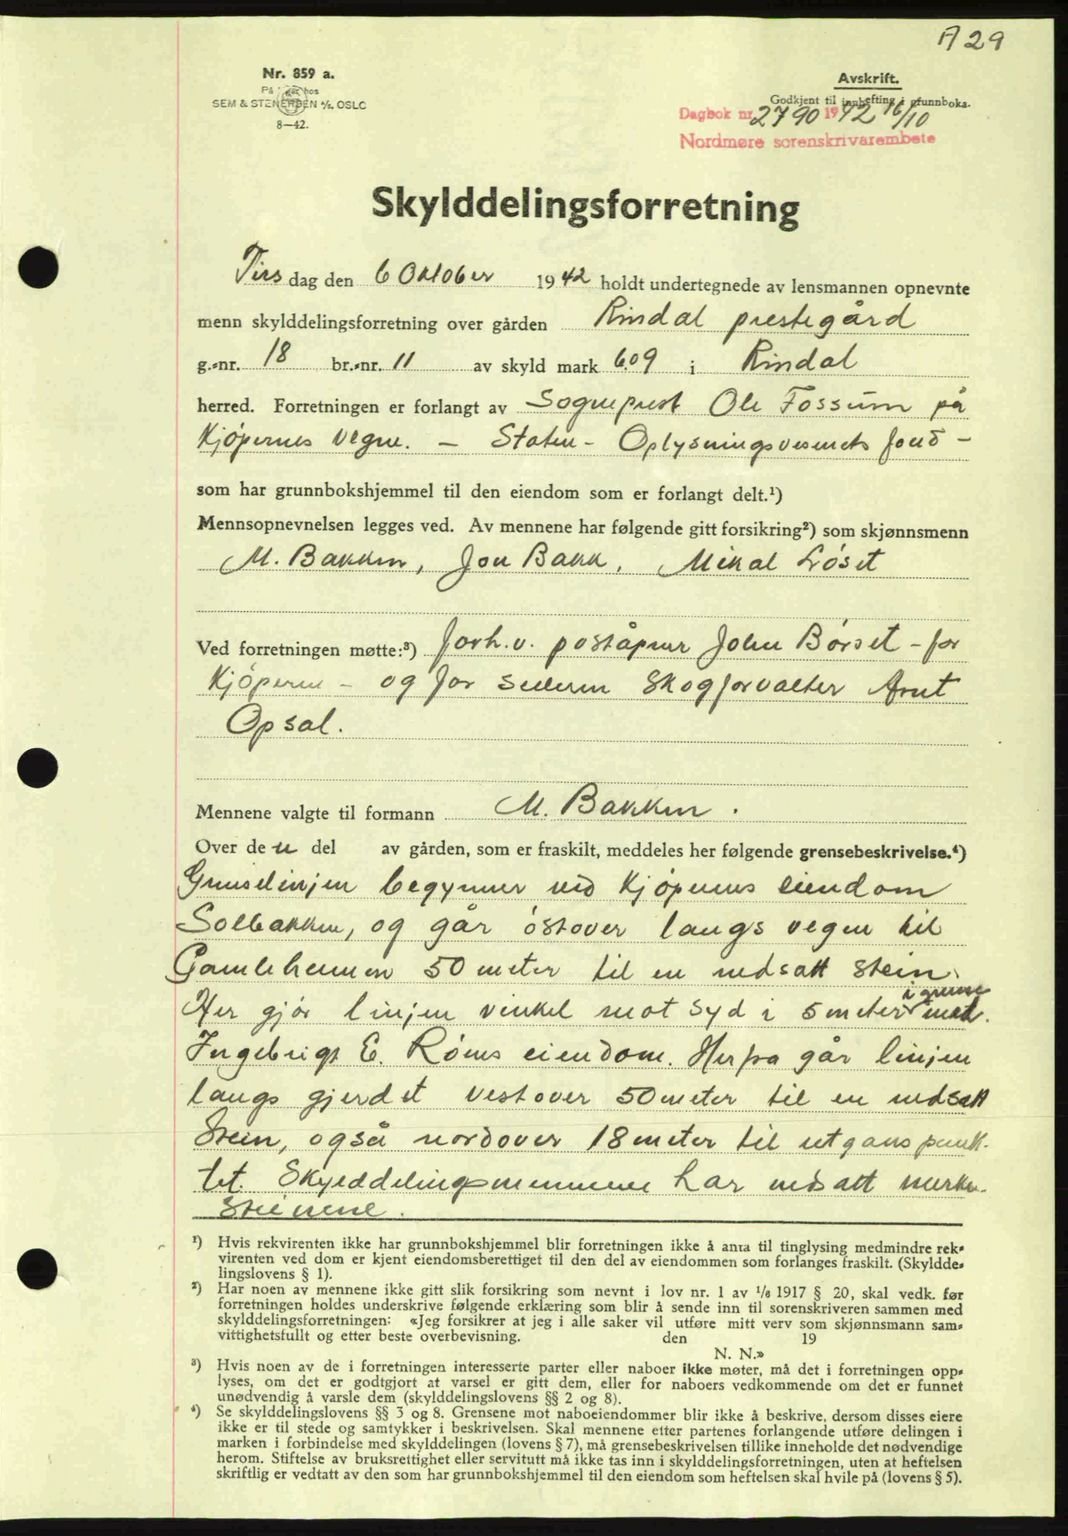 A 29
Nr. 859 a.
På lager hos
SEM & STENERSEN A/S, OSLO
8—42.
Avskrift.
Godkjent til innhefting i grunnboka.
Dagbok nr. 2790 1942 16/10
Nordmøre sorenskrivarembete
Skylddelingsforretning
Tirsdag den 6 Oktober 1942 holdt undertegnede av lensmannen opnevnte
menn skylddelingsforretning over gården Rindal prestegård
g.-nr. 18 br.-nr. 11 av skyld mark 6.09 i Rindal
herred. Forretningen er forlangt av Sogneprest Ole Fossum på
Kjöpernes vegne. — Staten — Oplysningsvesenets fond —
som har grunnbokshjemmel til den eiendom som er forlangt delt.¹)
Mennsopnevnelsen legges ved. Av mennene har følgende gitt forsikring²) som skjønnsmenn
M. Bakken, Jon Bakk, Mikal Löset
Ved forretningen møtte:³) forh.v. poståpner John Börset – for
Kjöperne – og for selleren Skogforvalter Arnt
Opsal.
Mennene valgte til formann M. Bakken.
Over den del av gården, som er fraskilt, meddeles her følgende grensebeskrivelse.⁴)
Grenselinjen begynner ved Kjöpernes eiendom
Solbakken, og går östover langs vegen til
Gamleheimen 50 meter til en nedsatt stein.
Her gjör linjen vinkel mot syd i 5 meter i grense med
Ingebrigt E. Röms eiendom. Herfra går linjen
langs gjerdet vestover 50 meter til en nedsatt
Stein, også nordover 18 meter til utganspunk-
tet. Skylddelingsmennene har nedsatt merke-
steinene.
¹) Hvis rekvirenten ikke har grunnbokshjemmel blir forretningen ikke å anta til tinglysing medmindre rek-
virenten ved dom er kjent eiendomsberettiget til den del av eiendommen som forlanges fraskilt. (Skyldde-
lingslovens § 1).
²) Har noen av mennene ikke gitt slik forsikring som nevnt i lov nr. 1 av 1/6 1917 § 20, skal vedk. før
forretningen holdes underskrive følgende erklæring som blir å sende inn til sorenskriveren sammen med
skylddelingsforretningen: «Jeg forsikrer at jeg i alle saker vil utføre mitt verv som skjønnsmann sam-
vittighetsfullt og etter beste overbevisning. den 19
N. N.»
³) Hvis noen av de i forretningen interesserte parter eller naboer ikke møter, må det i forretningen opp-
lyses, om det er godtgjort at varsel er gitt dem, eller for naboers vedkommende om det er funnet
unødvendig å varsle dem (skylddelingslovens §§ 2 og 8).
⁴) Se skylddelingslovens §§ 3 og 8. Grensene mot naboeiendommer blir ikke å beskrive, dersom disses eiere
ikke er til stede og samtykker i beskrivelsen. Skal mennene etter partenes forlangende utføre delingen i
marken i forbindelse med skylddelingen (lovens § 7), må grensebeskrivelsen tillike inneholde det nødvendige
herom. Stiftelse av bruksrettighet eller servitutt må ikke tas inn i skylddelingsforretningen, uten at heftelsen
skriftlig er vedtatt av den som har grunnbokshjemmel til den eiendom som heftelsen skal hvile på (lovens § 5).